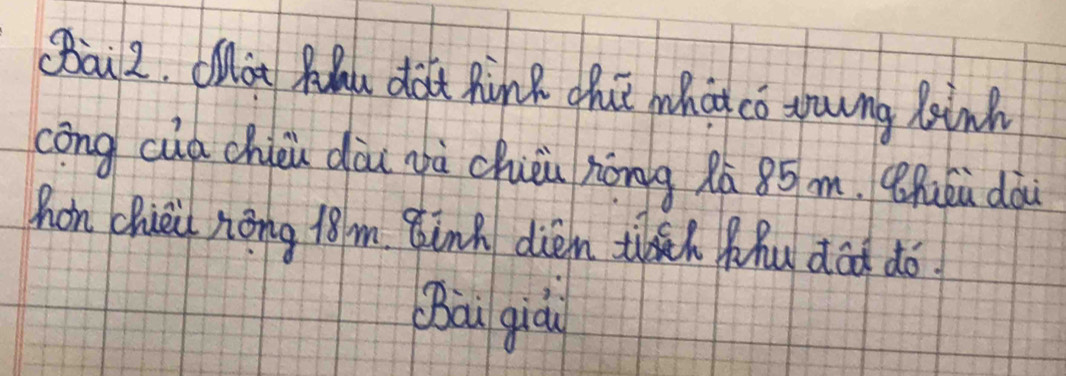 Bài 2. Một khu đất hình chữ nhật có trung bình
cộng của chiều dài và chiều rộng là 85 m. Chiều dài
hơn chiều rộng 18 m. Tính diện tích khu đất đó.
Bài giải